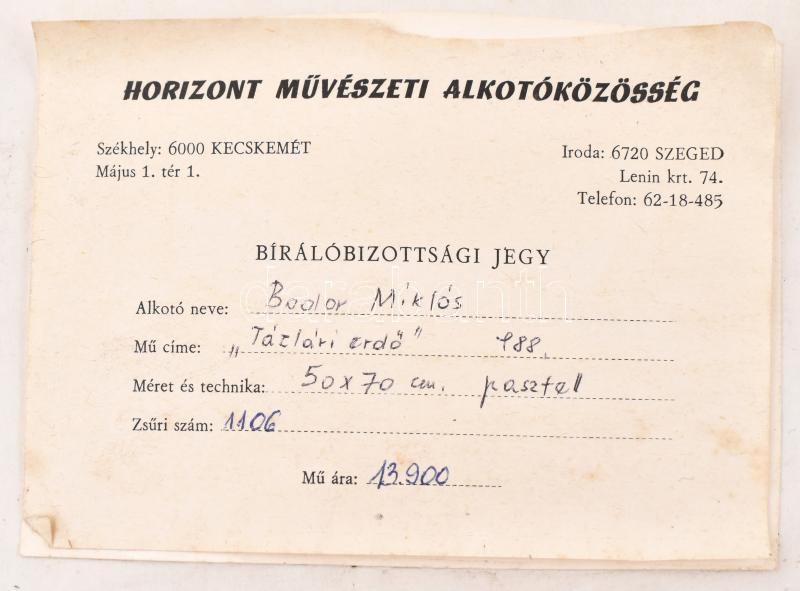 HORIZONT MŰVÉSZETI ALKOTÓKÖZÖSSÉG
Székhely: 6000 KECSKEMÉT
Május 1. tér 1.
Iroda: 6720 SZEGED
Lenin krt. 74.
Telefon: 62-18-485
BÍRÁLÓBIZOTTSÁGI JEGY
darabanth
Alkotó neve: Bodor Miklós
Mű címe: „Tázlári erdő" 988.
Méret és technika: 50x70 cm. pasztel
Zsűri szám: 1106
Mű ára: 13.900